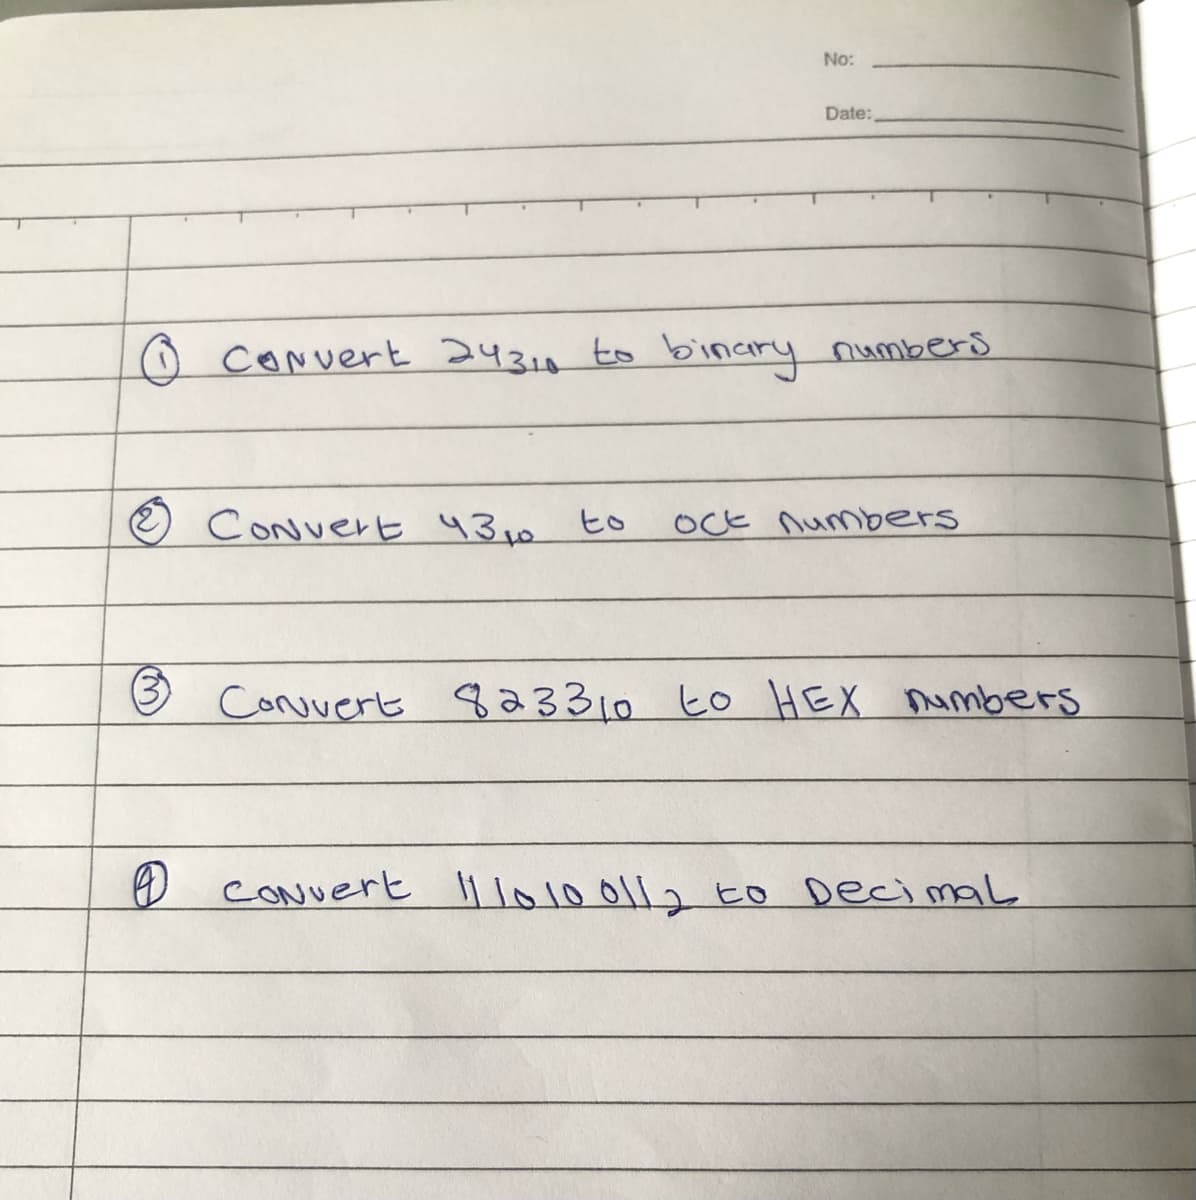 No:
Date:
① Convert 243₁₀ to binary numbers
② Convert 43₁₀ to oct numbers
③ Convert 8233₁₀ to HEX numbers
④ Convert 111010011₂ to Decimal